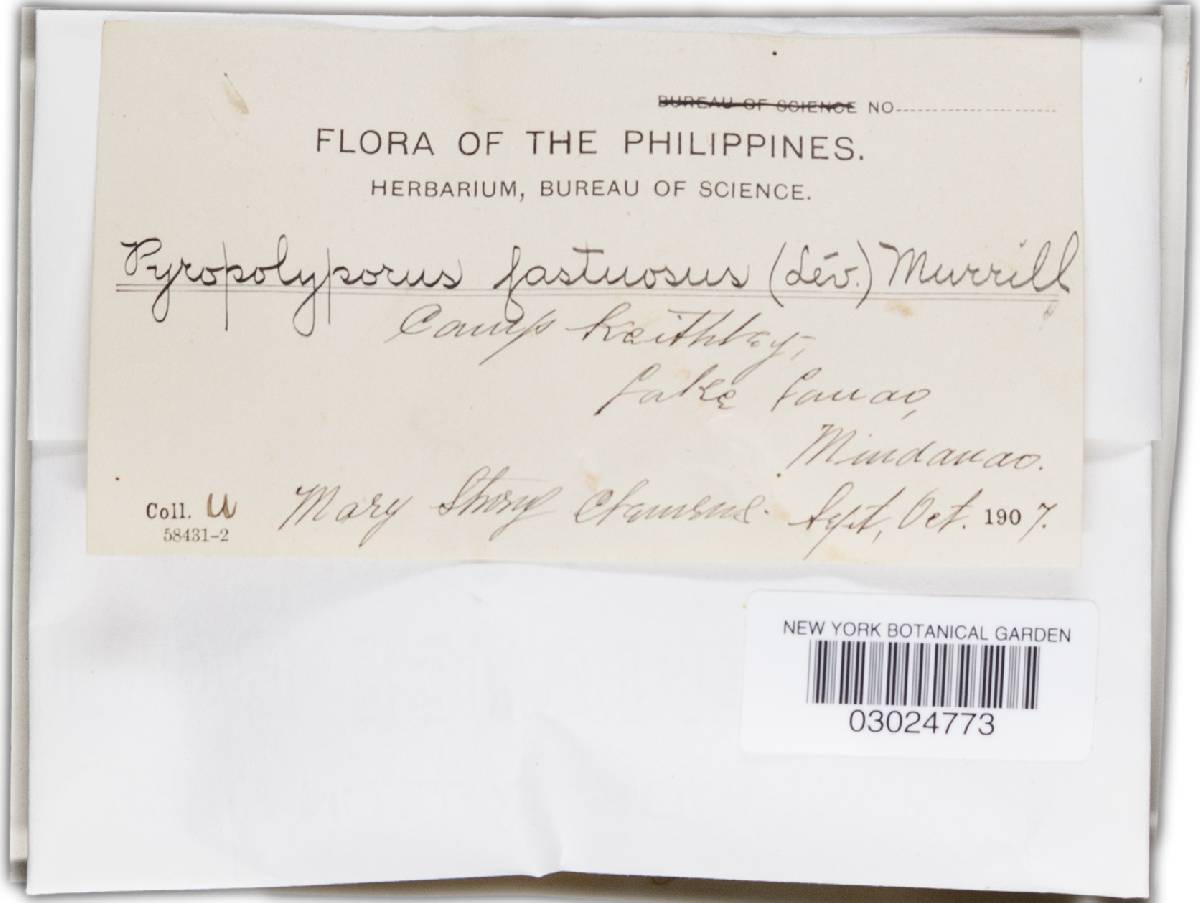 BUREAU OF SCIENCE NO.
FLORA OF THE PHILIPPINES.
HERBARIUM, BUREAU OF SCIENCE.
Pyropolyporus fastuosus (Lév.) Murrill
Camp Keithley,
Lake Lanao,
Mindanao.
Coll. Mary Strong Clemens. Sept, Oct. 1907.
58431-2
NEW YORK BOTANICAL GARDEN
03024773